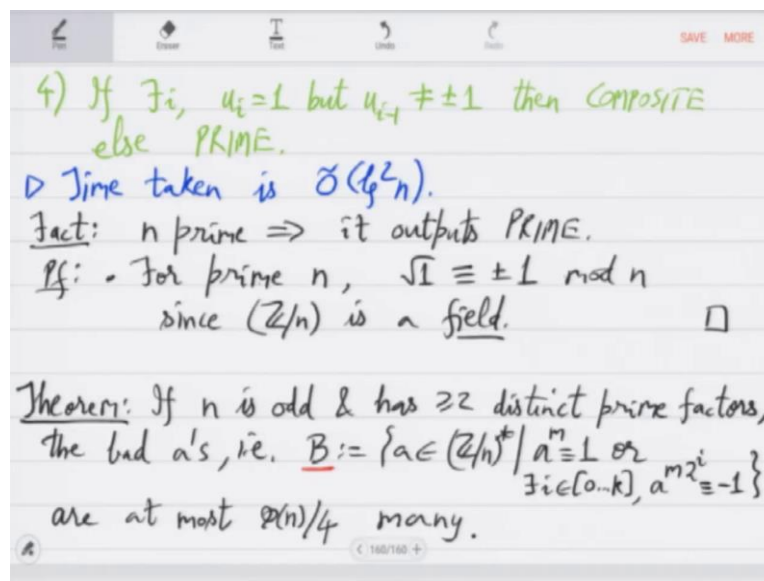 Pen Eraser Text Undo Redo SAVE MORE
4) If ∃i, uᵢ=1 but uᵢ₋₁ ≠ ±1 then COMPOSITE
else PRIME.
▷ Time taken is Õ(lg²n).
Fact: n prime ⟹ it outputs PRIME.
Pf: • For prime n, √1 ≡ ±1 mod n
since (ℤ/n) is a field. □
Theorem: If n is odd & has ≥2 distinct prime factors,
the bad a's, i.e. B := {a∈(ℤ/n)* | aᵐ≡1 or
∃i∈[0...k], a^{m2^i}≡-1}
are at most φ(n)/4 many.
< 160/160 +